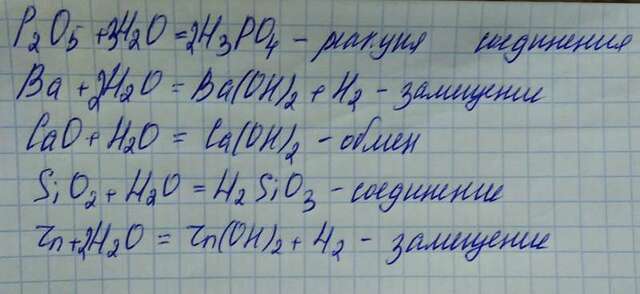 P₂O₅ + 3H₂O = 2H₃PO₄ – реакция соединения
Ba + 2H₂O = Ba(OH)₂ + H₂ – замещение
CaO + H₂O = Ca(OH)₂ – обмен
SiO₂ + H₂O = H₂SiO₃ – соединение
Zn + 2H₂O = Zn(OH)₂ + H₂ – замещение